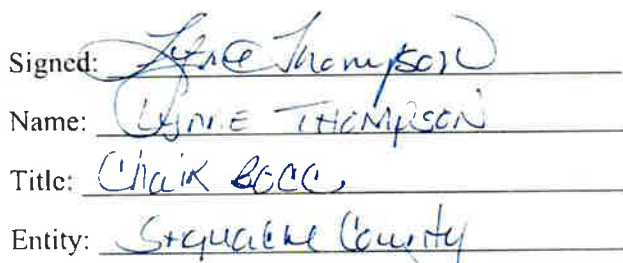 Signed: Lynne Thompson
Name: LYNNE THOMPSON
Title: Chair BOCC
Entity: Saguache County